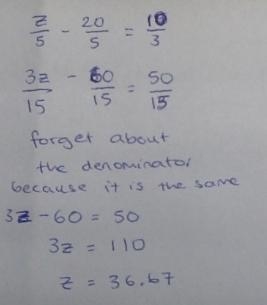 z/5 - 20/5 = 10/3
3z/15 - 60/15 = 50/15
forget about
the denominator
because it is the same
3z - 60 = 50
3z = 110
z = 36.67